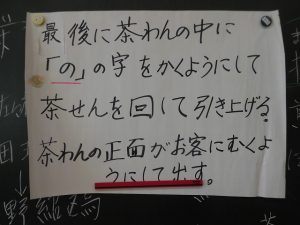 最後に茶わんの中に
「の」の字をかくようにして
茶せんを回して引き上げる。
茶わんの正面がお客にむくよ
うにして出す。